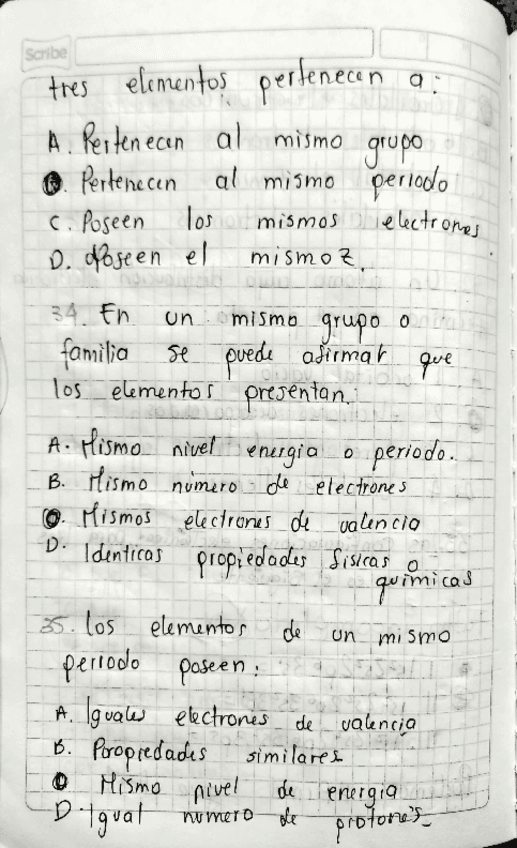 Scribe
tres elementos pertenecen a:
A. Pertenecen al mismo grupo
B. Pertenecen al mismo periodo
C. Poseen los mismos electrones.
D. Poseen el mismo Z.
34. En un mismo grupo o
familia se puede afirmar que
los elementos presentan:
A. Mismo nivel energia o periodo.
B. Mismo número de electrones
C. Mismos electrones de valencia
D. Identicas propiedades fisicas o
quimicas
35. Los elementos de un mismo
periodo poseen:
A. Iguales electrones de valencia
B. Poropiedades similares
C Mismo nivel de energia
D. Igual numero de protones